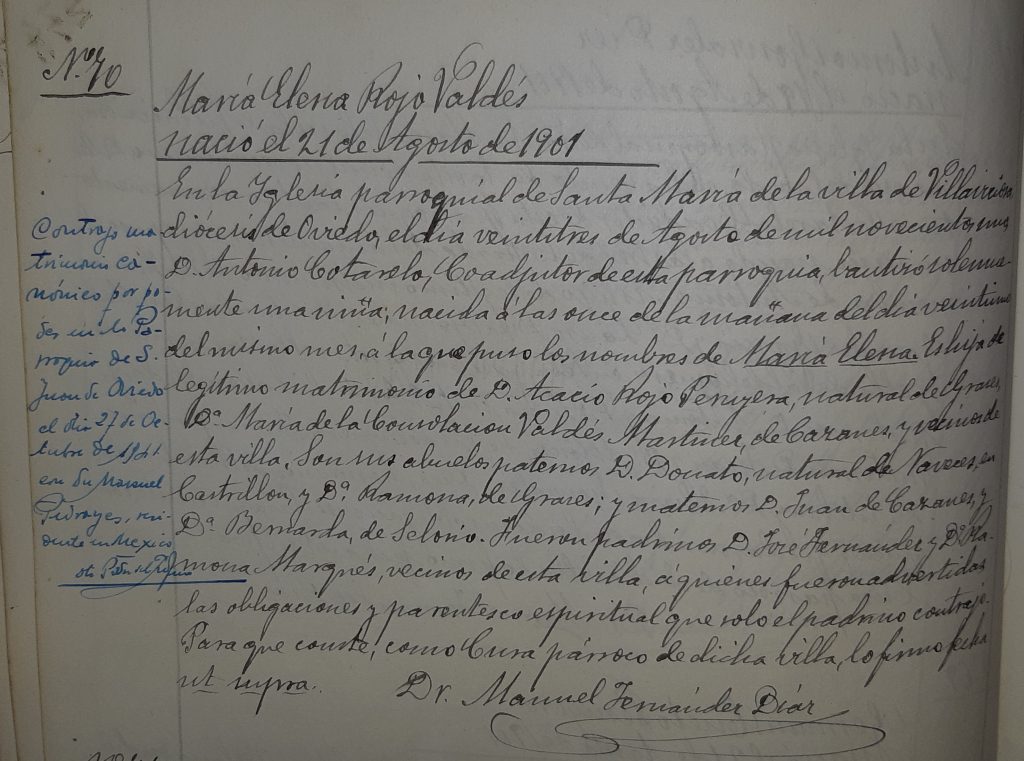 Nº 70
María Elena Rojo Valdés
nació el 21 de Agosto de 1901
En la Iglesia parroquial de Santa María de la villa de Villaviciosa,
diócesis de Oviedo, el día veintitres de Agosto de mil novecientos uno,
D. Antonio Cotarelo, Coadjutor de esta parroquia, bautizó solemne-
mente una niña, nacida á las once de la mañana del día veintiuno
del mismo mes, á la que puso los nombres de María Elena. Es hija de
legítimo matrimonio de D. Acacio Rojo Peruyera, natural de Grases,
y Dª María de la Consolacion Valdés Martinez, de Cazanes, y vecinos de
esta villa. Son sus abuelos paternos D. Donato, natural de Naveces, en
Castrillon, y Dª Ramona, de Grases; y maternos D. Juan de Cazanes, y
Dª Bernarda, de Selorio. Fueron padrinos D. José Fernández y Dª Ra-
mona Marqués, vecinos de esta villa, á quiénes fueron advertidas
las obligaciones y parentesco espiritual que solo el padrino contrajo.
Para que conste, como Cura párroco de dicha villa, lo firmo fecha
ut supra.
Dr. Manuel Fernández Díaz
Contrajo ma-
trimonio ca-
nónico por po-
der en la Pa-
rroquia de S.
Juan de Oviedo
el día 27 de Oc-
tubre de 1941
con Dn Manuel
Pedrayes, resi-
dente en Mexico